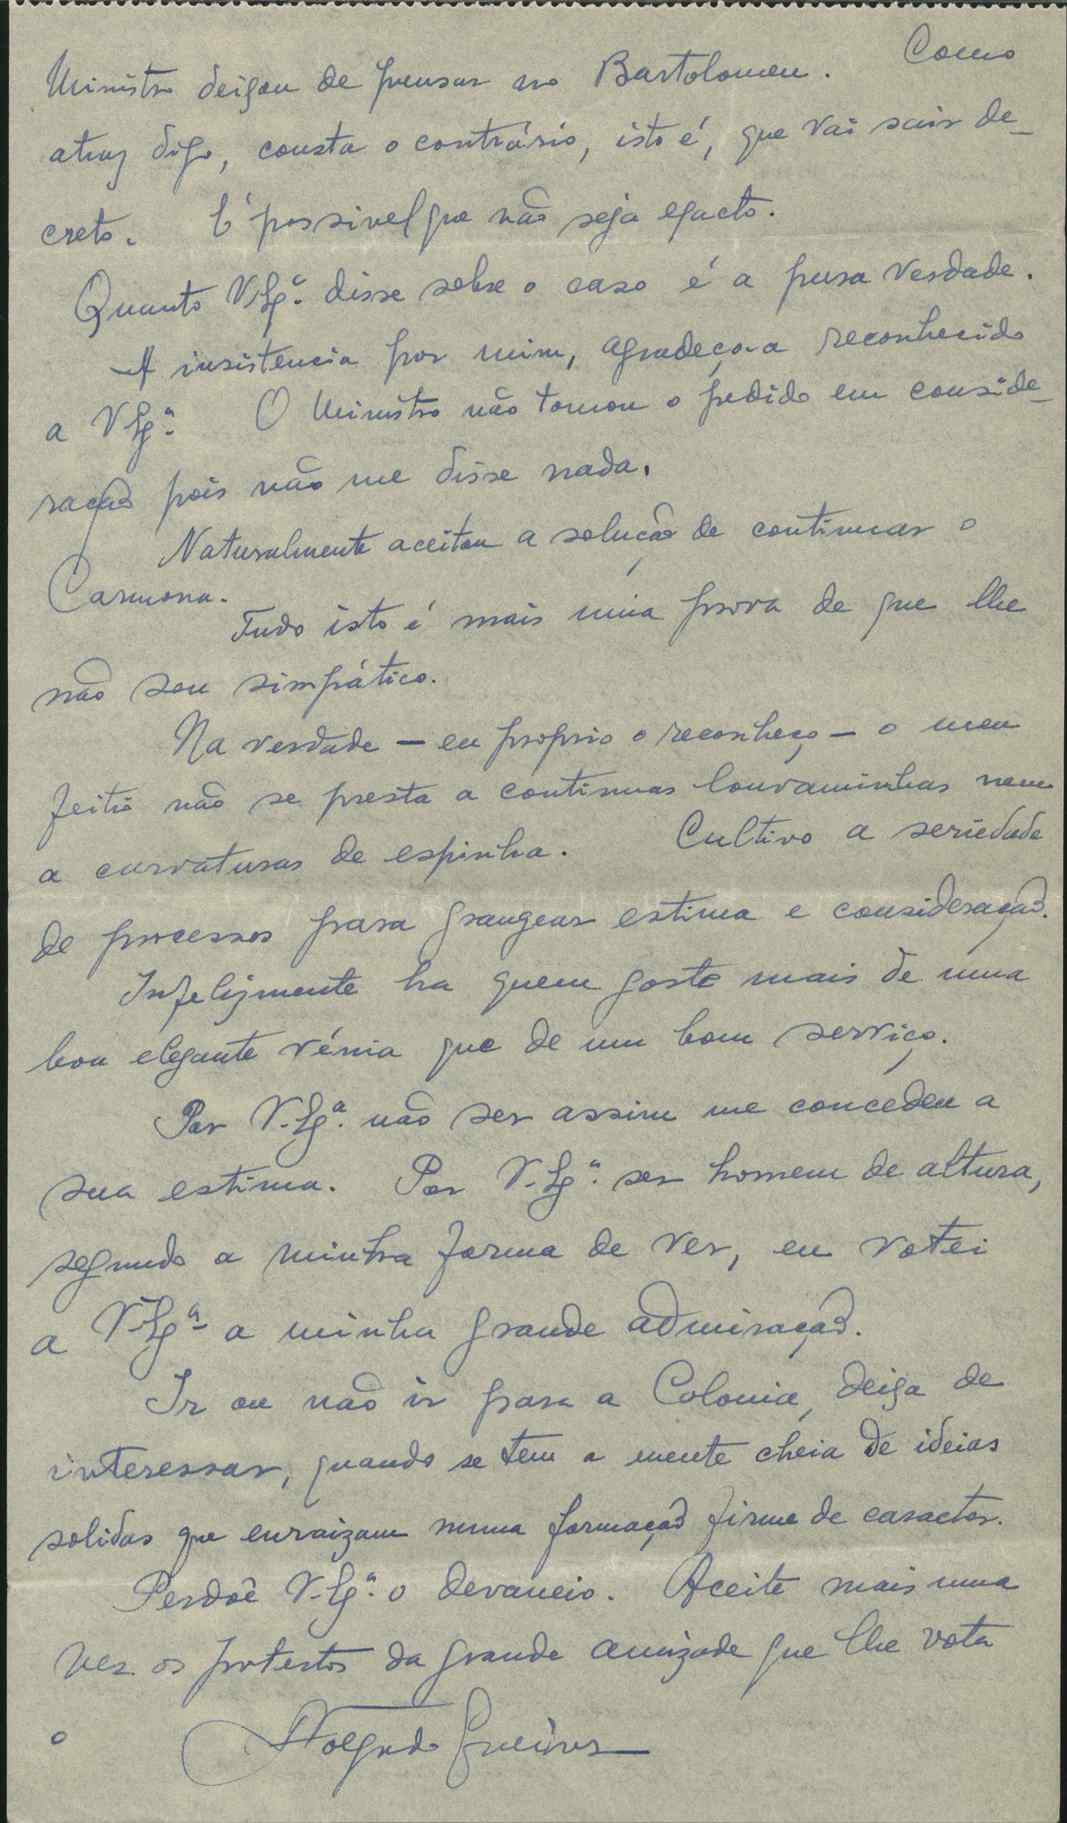 Ministro deixou de pensar no Bartolomeu. Como
atraz digo, consta o contrário, isto é, que vai sair de-
creto. É possivel que não seja exacto.
Quanto V. Exª. disse sobre o caso é a pura verdade.
A insistencia por mim, agradeço-a reconhecido
a V. Exª. O Ministro não tomou o pedido em conside-
ração pois não me disse nada.
Naturalmente aceitou a solução de continuar o
Carmona.
Tudo isto é mais uma prova de que lhe
não sou simpático.
Na verdade – eu proprio o reconheço – o meu
feitio não se presta a continuas louvaminhas nem
a curvaturas de espinha. Cultivo a seriedade
de processos para grangear estima e consideração.
Infelizmente ha quem goste mais de uma
boa elegante vénia que de um bom serviço.
Por V. Exª. não ser assim me concedeu a
sua estima. Por V. Exª. ser homem de altura,
segundo a minha forma de ver, eu votei
a V. Exª a minha grande admiração.
Ir ou não ir para a Colonia, deixa de
interessar, quando se tem a mente cheia de ideias
solidas que enraizam numa formação firme de caracter.
Perdoê V. Exª. o devaneio. Aceite mais uma
vez os protestos da grande amizade que lhe vota
o